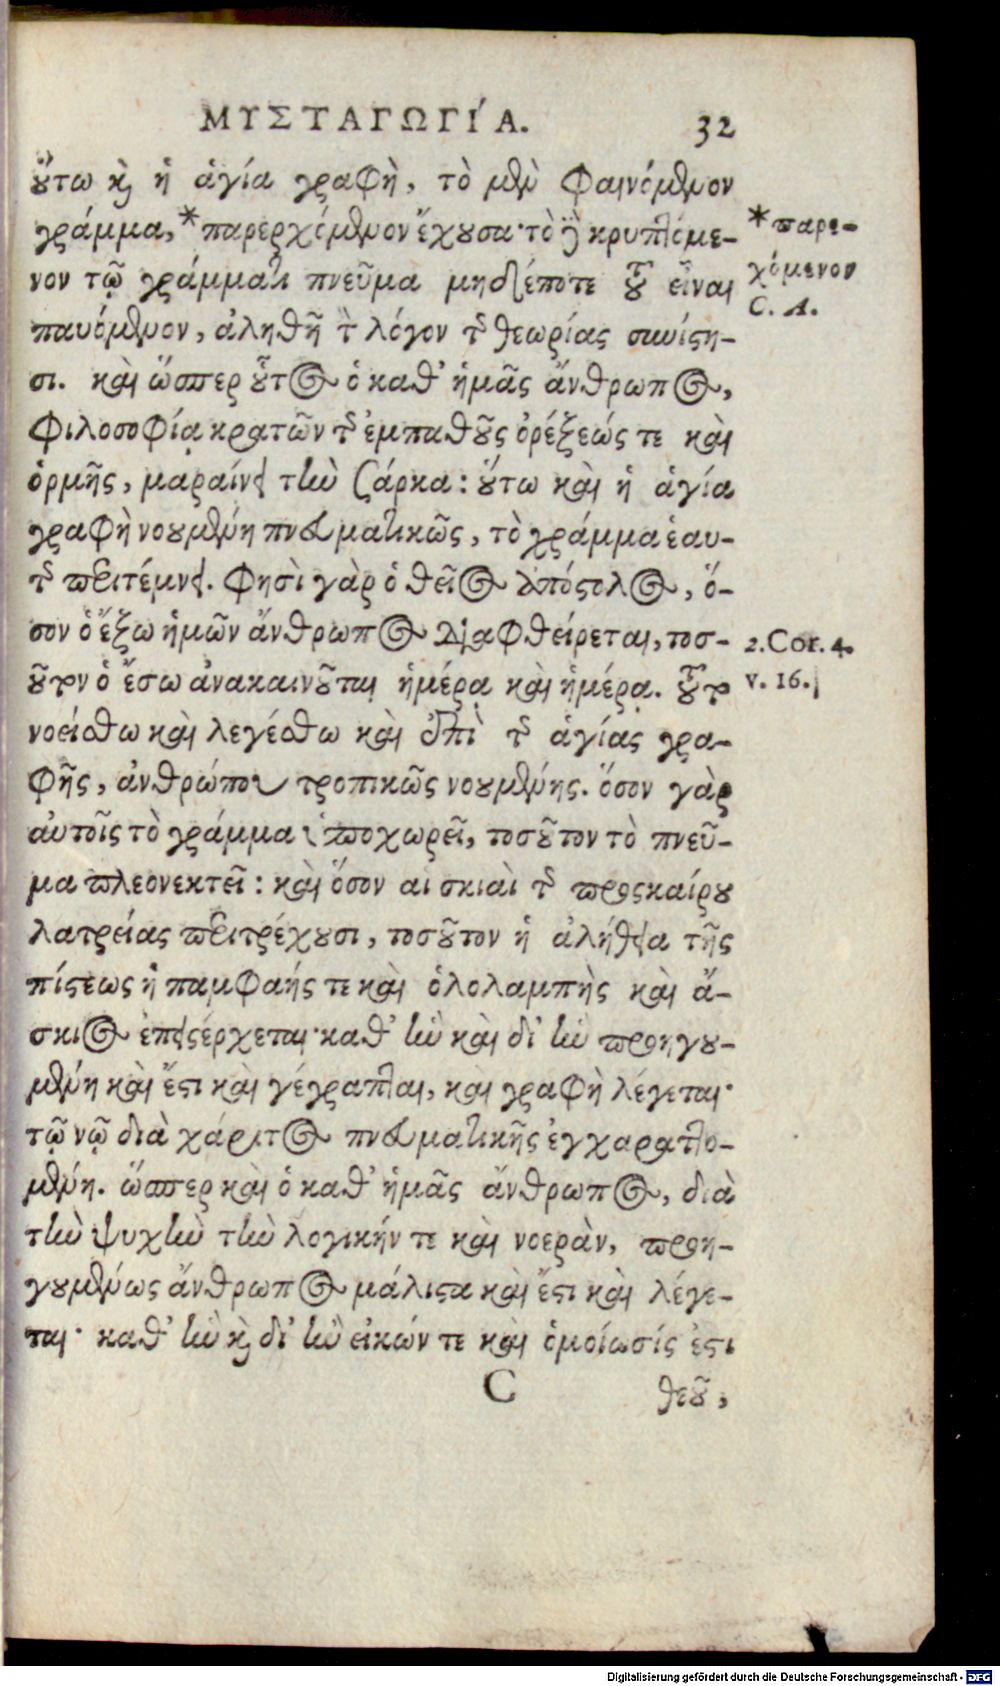 ΜΥΣΤΑΓΩΓΊΑ. 32
οὕτω καὶ ἡ ἁγία γραφὴ, τὸ μὲν φαινόμενον
γράμμα,* παρερχόμενον ἔχουσα· τὸ δὲ κρυπτόμε-
νον τῷ γράμματι πνεῦμα μηδέποτε τοῦ εἶναι
παυόμενον, ἀληθῆ τὸν λόγον τῆς θεωρίας συνίστη-
σι. καὶ ὥσπερ οὗτος ὁ καθ' ἡμᾶς ἄνθρωπος,
φιλοσοφίᾳ κρατῶν τῆς ἐμπαθοῦς ὀρέξεώς τε καὶ
ὁρμῆς, μαραίνει τὴν σάρκα: οὕτω καὶ ἡ ἁγία
γραφὴ νοουμένη πνευματικῶς, τὸ γράμμα ἑαυ-
τῆς περιτέμνει. φησὶ γὰρ ὁ θεῖος ἀπόστολος, ὅ-
σον ὁ ἔξω ἡμῶν ἄνθρωπος διαφθείρεται, τοσ-
οῦτον ὁ ἔσω ἀνακαινοῦται ἡμέρᾳ καὶ ἡμέρᾳ. τοῦτο
νοείσθω καὶ λεγέσθω καὶ ἐπὶ τῆς ἁγίας γρα-
φῆς, ἀνθρώπου τροπικῶς νοουμένης. ὅσον γὰρ
αὐτοῖς τὸ γράμμα ὑποχωρεῖ, τοσοῦτον τὸ πνεῦ-
μα πλεονεκτεῖ: καὶ ὅσον αι σκιαὶ τῆς προσκαίρου
λατρείας περιτρέχουσι, τοσοῦτον ἡ ἀλήθεια τῆς
πίστεως ἡ παμφαής τε καὶ ὁλολαμπὴς καὶ ἄ-
σκιος ἐπεισέρχεται· καθ' ἣν καὶ δι' ἣν προηγου-
μένη καὶ ἔστι καὶ γέγραπται, καὶ γραφὴ λέγεται·
τῷ νῷ διὰ χάριτος πνευματικῆς ἐγχαραττο-
μένη. ὥσπερ καὶ ὁ καθ' ἡμᾶς ἄνθρωπος, διὰ
τὴν ψυχὴν τὴν λογικήν τε καὶ νοερὰν, προη-
γουμένως ἄνθρωπος μάλιστα καὶ ἔστι καὶ λέγε-
ται· καθ' ἣν καὶ δι' ἣν εἰκών τε καὶ ὁμοίωσίς ἐστι
C θεοῦ,
* παρε-
χόμενον
C. A.
2. Cor. 4.
v. 16.
Digitalisierung gefördert durch die Deutsche Forschungsgemeinschaft - DFG